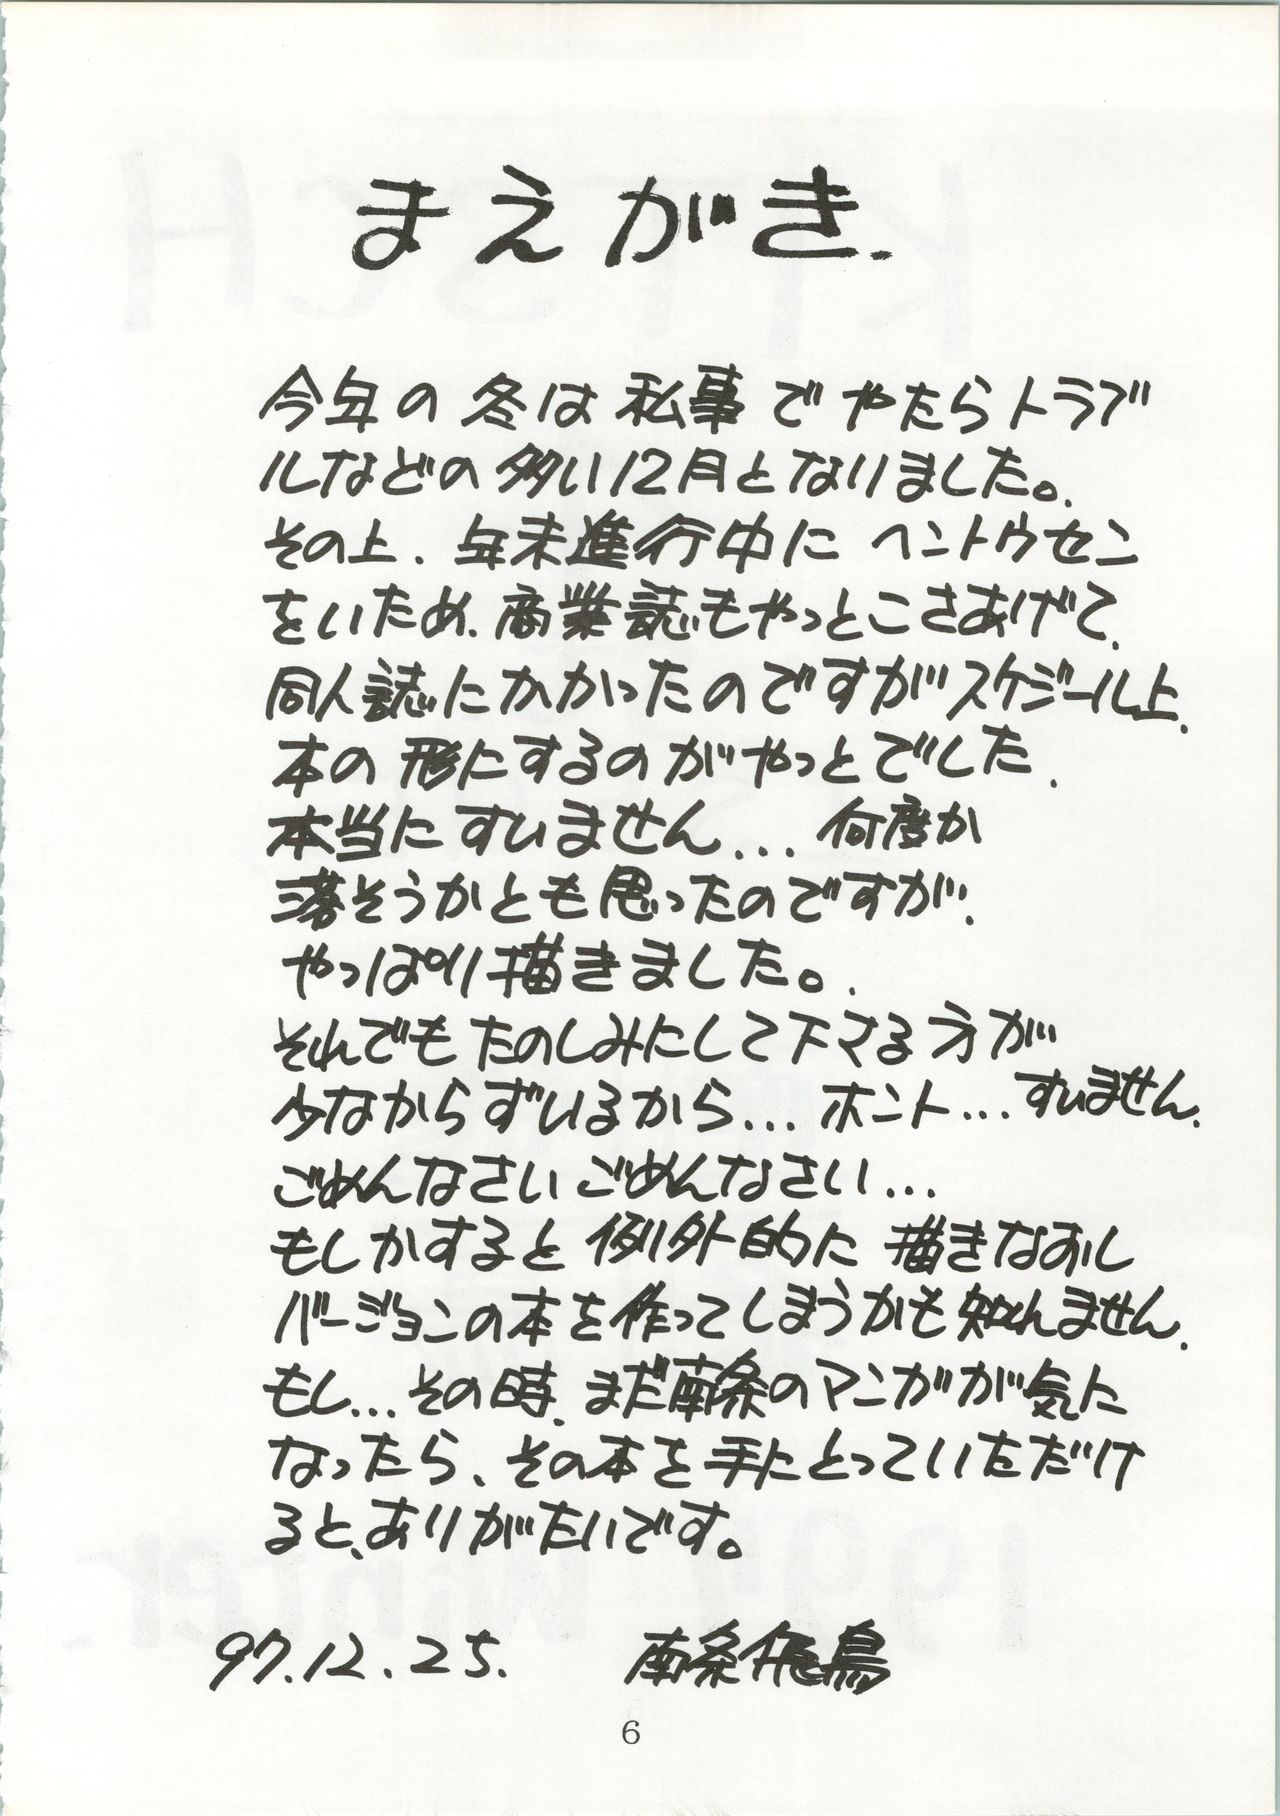 まえがき.
今年の冬は私事でやたらトラブ
ルなどの多い12月となりました。
その上、年末進行中にヘントウセン
をいため、商業誌もやっとこさあげて、
同人誌にかかったのですがスケジール上、
本の形にするのがやっとでした、
本当にすいません... 何度か
落そうかとも思ったのですが、
やっぱり描きました。
それでもたのしみにして下さる方が
少なからずいるから... ホント... すいません、
ごめんなさいごめんなさい...
もしかすると例外的に描きなおし
バージョンの本を作ってしまうかも知れません、
もし...その時、まだ南条のマンガが気に
なったら、その本を手にとっていただけ
ると、ありがたいです。
97.12.25. 南条飛鳥
6
KITSCH
1997 Winter